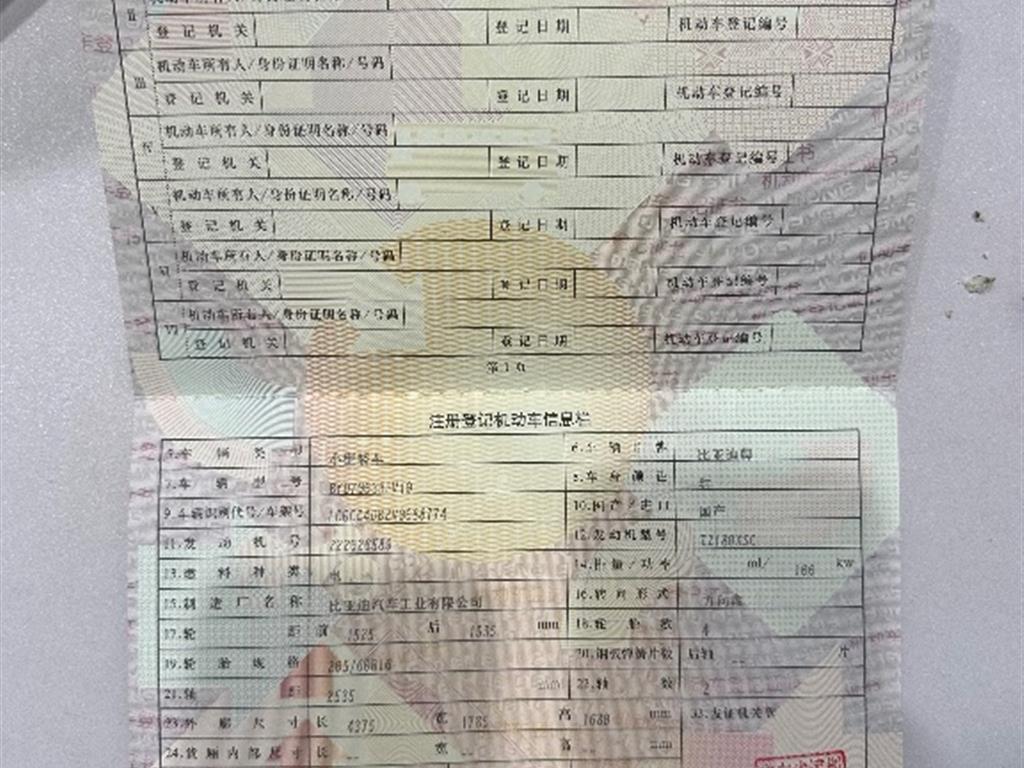 登记机关 登记日期 机动车登记编号
III 机动车所有人/身份证明名称/号码
登记机关 登记日期 机动车登记编号
机动车所有人/身份证明名称/号码
登记机关 登记日期 机动车登记编号
机动车所有人/身份证明名称/号码
登记机关 登记日期 机动车登记编号
机动车所有人/身份证明名称/号码
登记机关 登记日期 机动车登记编号
机动车所有人/身份证明名称/号码
登记机关 登记日期 机动车登记编号
第1页
注册登记机动车信息栏
5.车辆类型 小型轿车 6.车辆品牌 比亚迪牌
7.车辆型号 8.车身颜色 红
9.车辆识别代号/车架号 10.国产/进口 国产
11.发动机号 12.发动机型号 TZ180XSC
13.燃料种类 电 14.排量/功率 ml/ kw
15.制造厂名称 比亚迪汽车工业有限公司 16.转向形式 方向盘
17.轮距 前 1525 后 1535 mm 18.轮胎数 4
19.轮胎规格 205/60R16 20.钢板弹簧片数 后轴 -- 片
21.轴距 2535 mm 22.轴数 2
23.外廓尺寸 长 4375 宽 1785 高 1680 mm 33.发证机关章
24.货厢内部尺寸 长 -- 宽 -- 高 -- mm